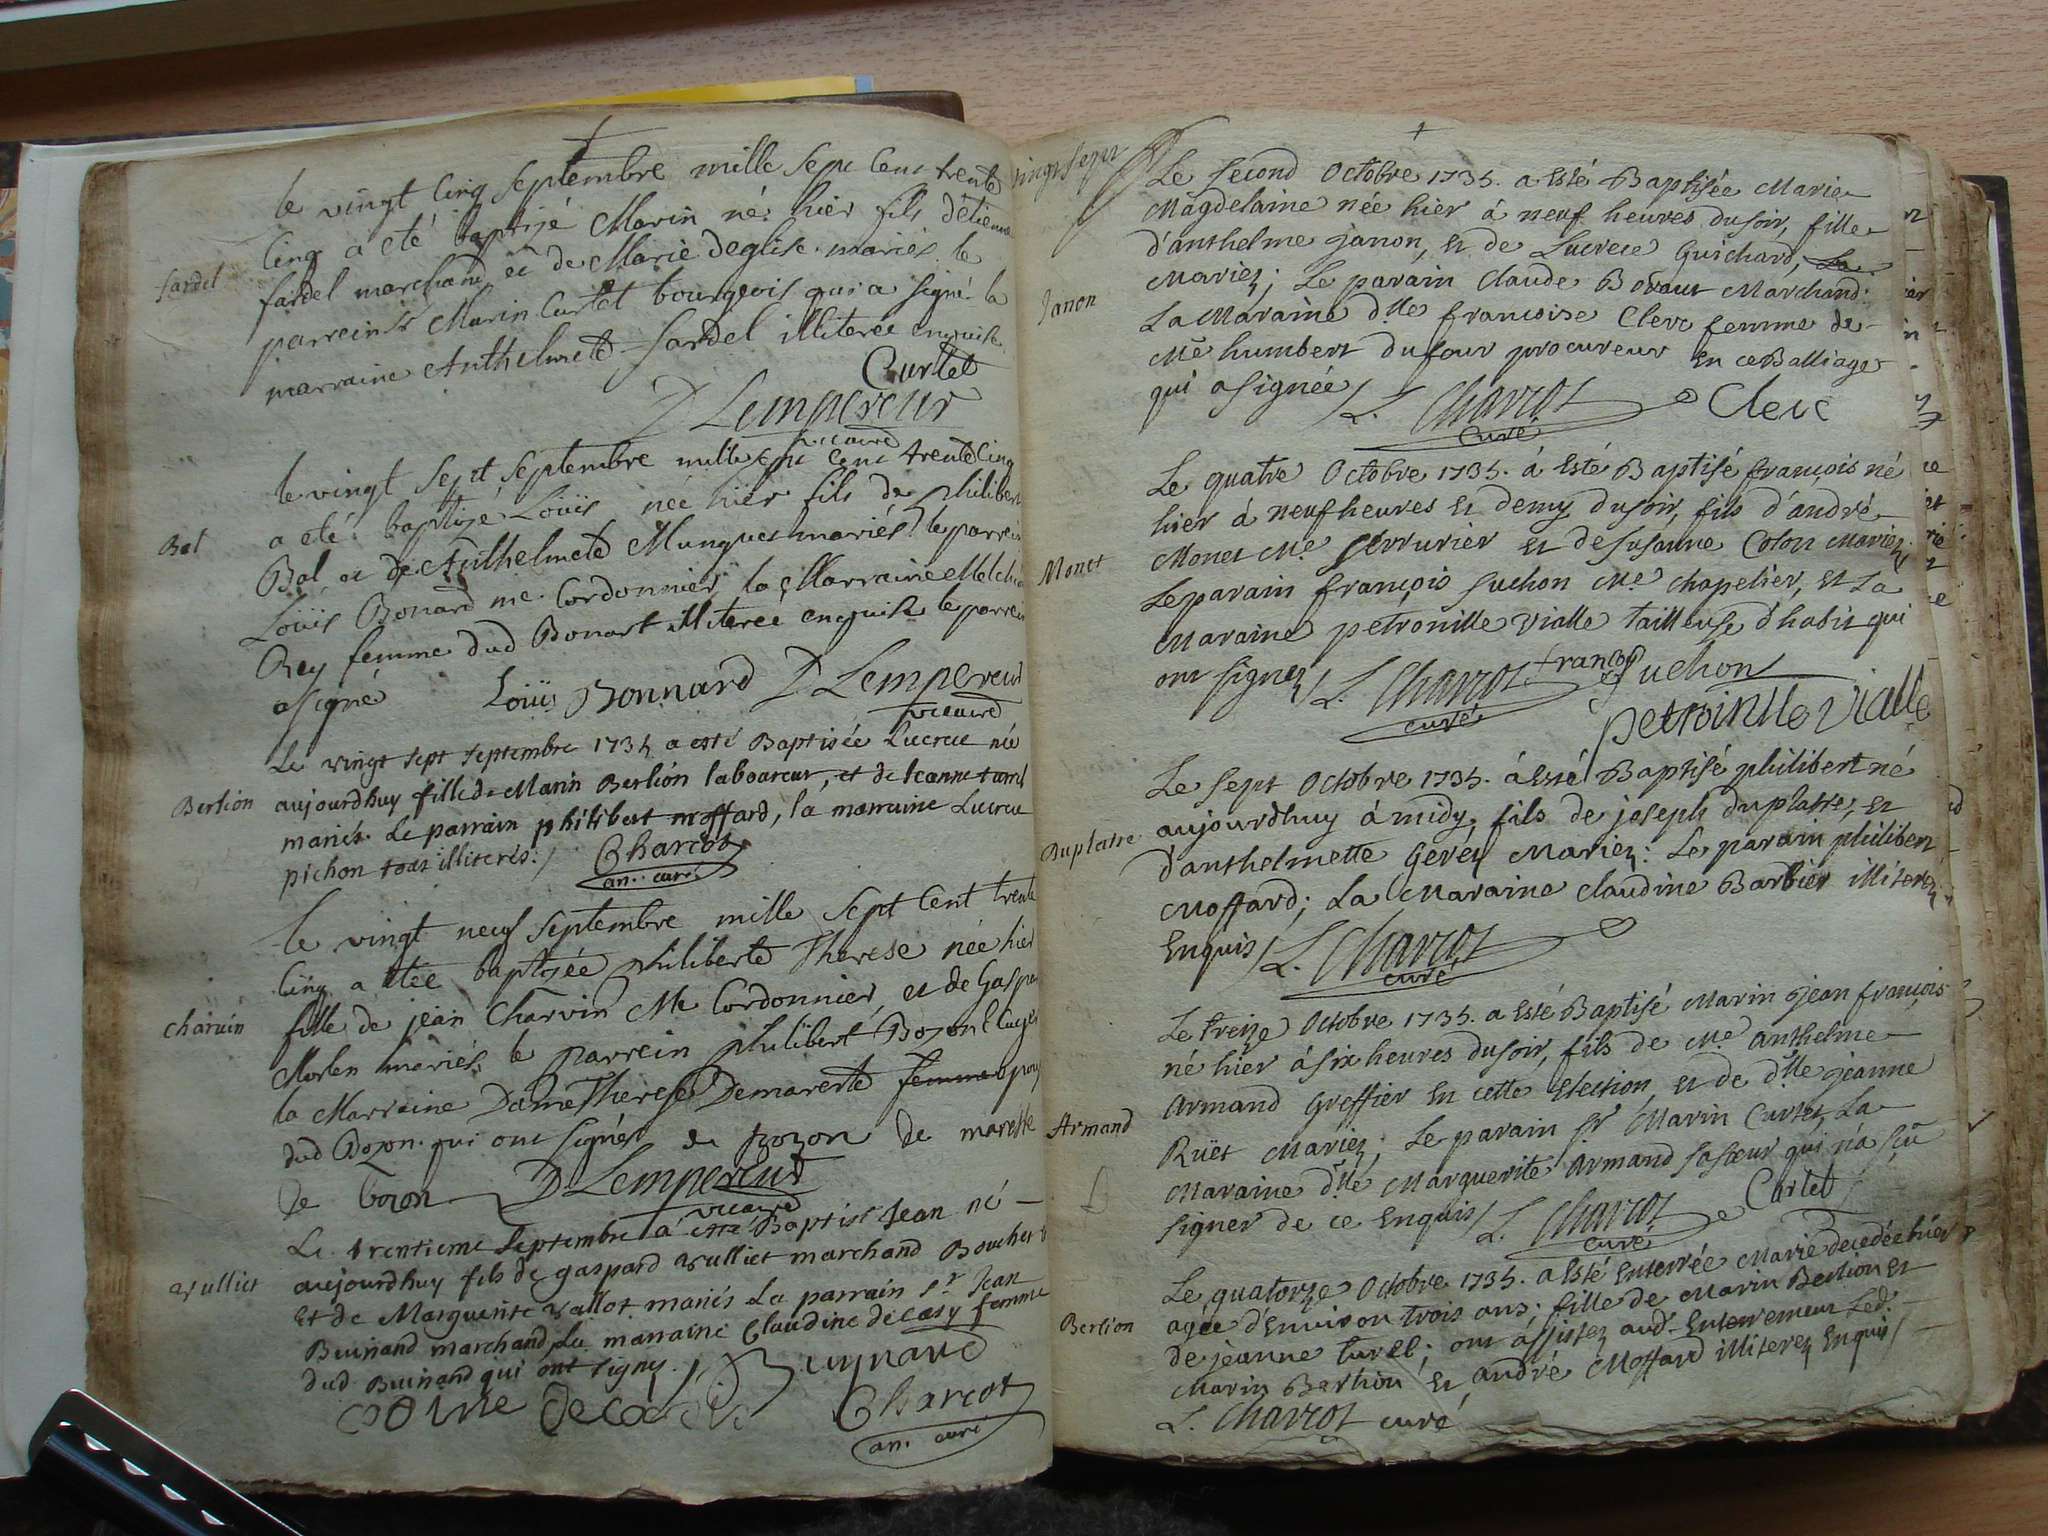 le vingt cinq septembre mille sept cent trente
cinq a eté baptizé Marin né hier fils d'étienne
fardel
fardel marchand et de Marie deglise mariés le
parrein Sr Marin Curtet bourgeois qui a signé la
marraine Anthelmete fardel illiterée enquise
Curtet
D Lempereur
viccaire
le vingt sept septembre mille sept cent trente cinq
a eté baptizé Loüis née hier fils de philibert
Bal
Bal et de Anthelmete Munguet mariés le parrein
Loüis Bonard me Cordonnier la Marraine
Rey femme dud Bonart illiterée enquise le parrein
a signé Loüis Bonnard D Lempereur
viccaire
Le vingt sept septembre 1735 a esté Baptisée Lucrece née
Bertion
aujourdhuy fille de Marin Bertion laboureur, et de Jeanne turrel
mariés. Le parrain philibert moffard, la marraine Lucrece
pichon tous illiterés./ Charcot
an. curé
le vingt neuf septembre mille sept cent trente
cinq a etée baptizée philiberte Therese née hier
charvin
fille de jean Charvin Me Cordonnier, et de Gasparde
Morlen mariés, le parrein philibert Bozon
la Marraine Dame Therese Demareste femme
dud Bozon qui ont signés de bozon de mareste
de bozon D Lempereur
viccaire
Le trentieme Septembre a esté Baptisé Jean né
vulliet
aujourdhuy fils de gaspard vulliet marchand Boucher
Et de Marguerite vallot mariés Le parrain Sr Jean
Buinand marchand La marraine Claudine decasy femme
dud Buinand qui ont signy./. Buynand
Charcot
an. curé
vingt sept
Le second Octobre 1735. a Esté Baptisée Marie
Magdelaine née hier á neuf heures du soir, fille
d'anthelme Janon, et de Lucrece Guichard, La
Janon
Mariez; Le parain Claude Bovaut Marchand.
La Maraine dlle francoise Clerc femme de
Me humbert dufour procureur En ce Balliage
qui a signée/ L. Charcot Clerc
curé
Le quatre Octobre 1735. á Esté Baptisé françois né
hier á neuf heures et demy du soir, fils d'andré
Monet
Monet Me Serrurier et de Susanne Colon Mariez
Le parain françois Suchon Me chapelier, et La
Maraine petronille Vialle tailleuse d'habit qui
ont signez/ L. Charcot francois Suchon
curé
petroinlle Vialle
Le sept Octobre 1735. á Esté Baptisé philibert né
aujourdhuy á midy, fils de joseph duplatre, et
Duplatre
d'anthelmette Gerey Mariez: Le parain philibert
Moffard; La Maraine Claudine Barbier illiterez
Enquis/ L. Charcot
curé
Le treize Octobre 1735. a Esté Baptisé Marin Jean françois
né hier á six heures du soir, fils de Me Anthelme
Armand Greffier En cette Election, et de dlle Jeanne
Armand
Rüet Mariez; Le parain Sr Marin Curtet, La
Maraine dlle Marguerite Armand sa sœur qui n'a sçü
signer de ce Enquis/ L. Charcot Curtet
curé
Le quatorze Octobre 1735. a Esté Enterrée Marie decedée hier
agée d'Environ trois ans: fille de Marin Bertion et
Bertion
de jeanne turel; ont assistez aud. Enterrement Led.
Marin Bertion et andré Moffard illiterez Enquis/
L. Charcot curé